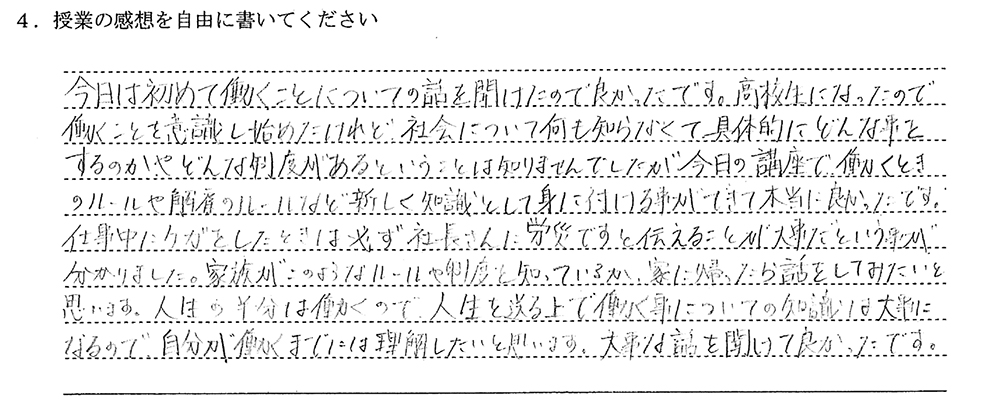 4．授業の感想を自由に書いてください
今日は初めて働くことについての話を聞けたので良かったです。高校生になったので
働くことを意識し始めたけれど、社会について何も知らなくて、具体的にどんな事を
するのかやどんな制度があるということは知りませんでしたが今日の講座で、働くとき
のルールや解雇のルールなど新しく知識として身に付ける事ができて本当に良かったです。
仕事中にケガをしたときは必ず社長さんに労災ですと伝えることが大事だという事が
分かりました。家族がこのようなルールや制度を知っているか、家に帰ったら話をしてみたいと
思います。人生の半分は働くので、人生を送る上で働く事についての知識は大事に
なるので、自分が働くまでには理解したいと思います。大事な話を聞けて良かったです。